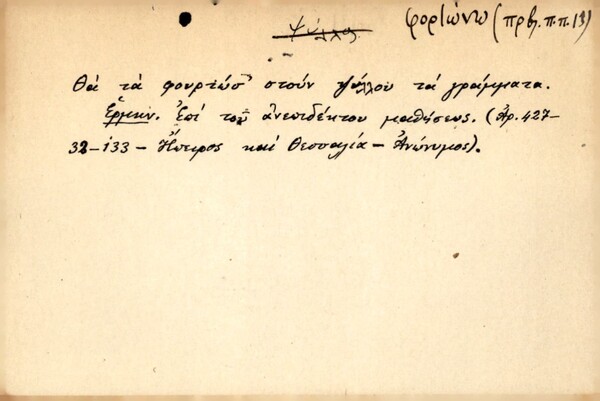 ψύλλος φορτώνω (πρβ. π.π. 13)
Θά τά φουρτώσ' στούν ψύλλου τά γράμματα.
Ἑρμην. Ἐπί τοῦ ἀνεπιδέκτου μαθήσεως. (Ἀρ. 427-
32-133 - Ἤπειρος καί Θεσσαλία - Ἀνώνυμος).